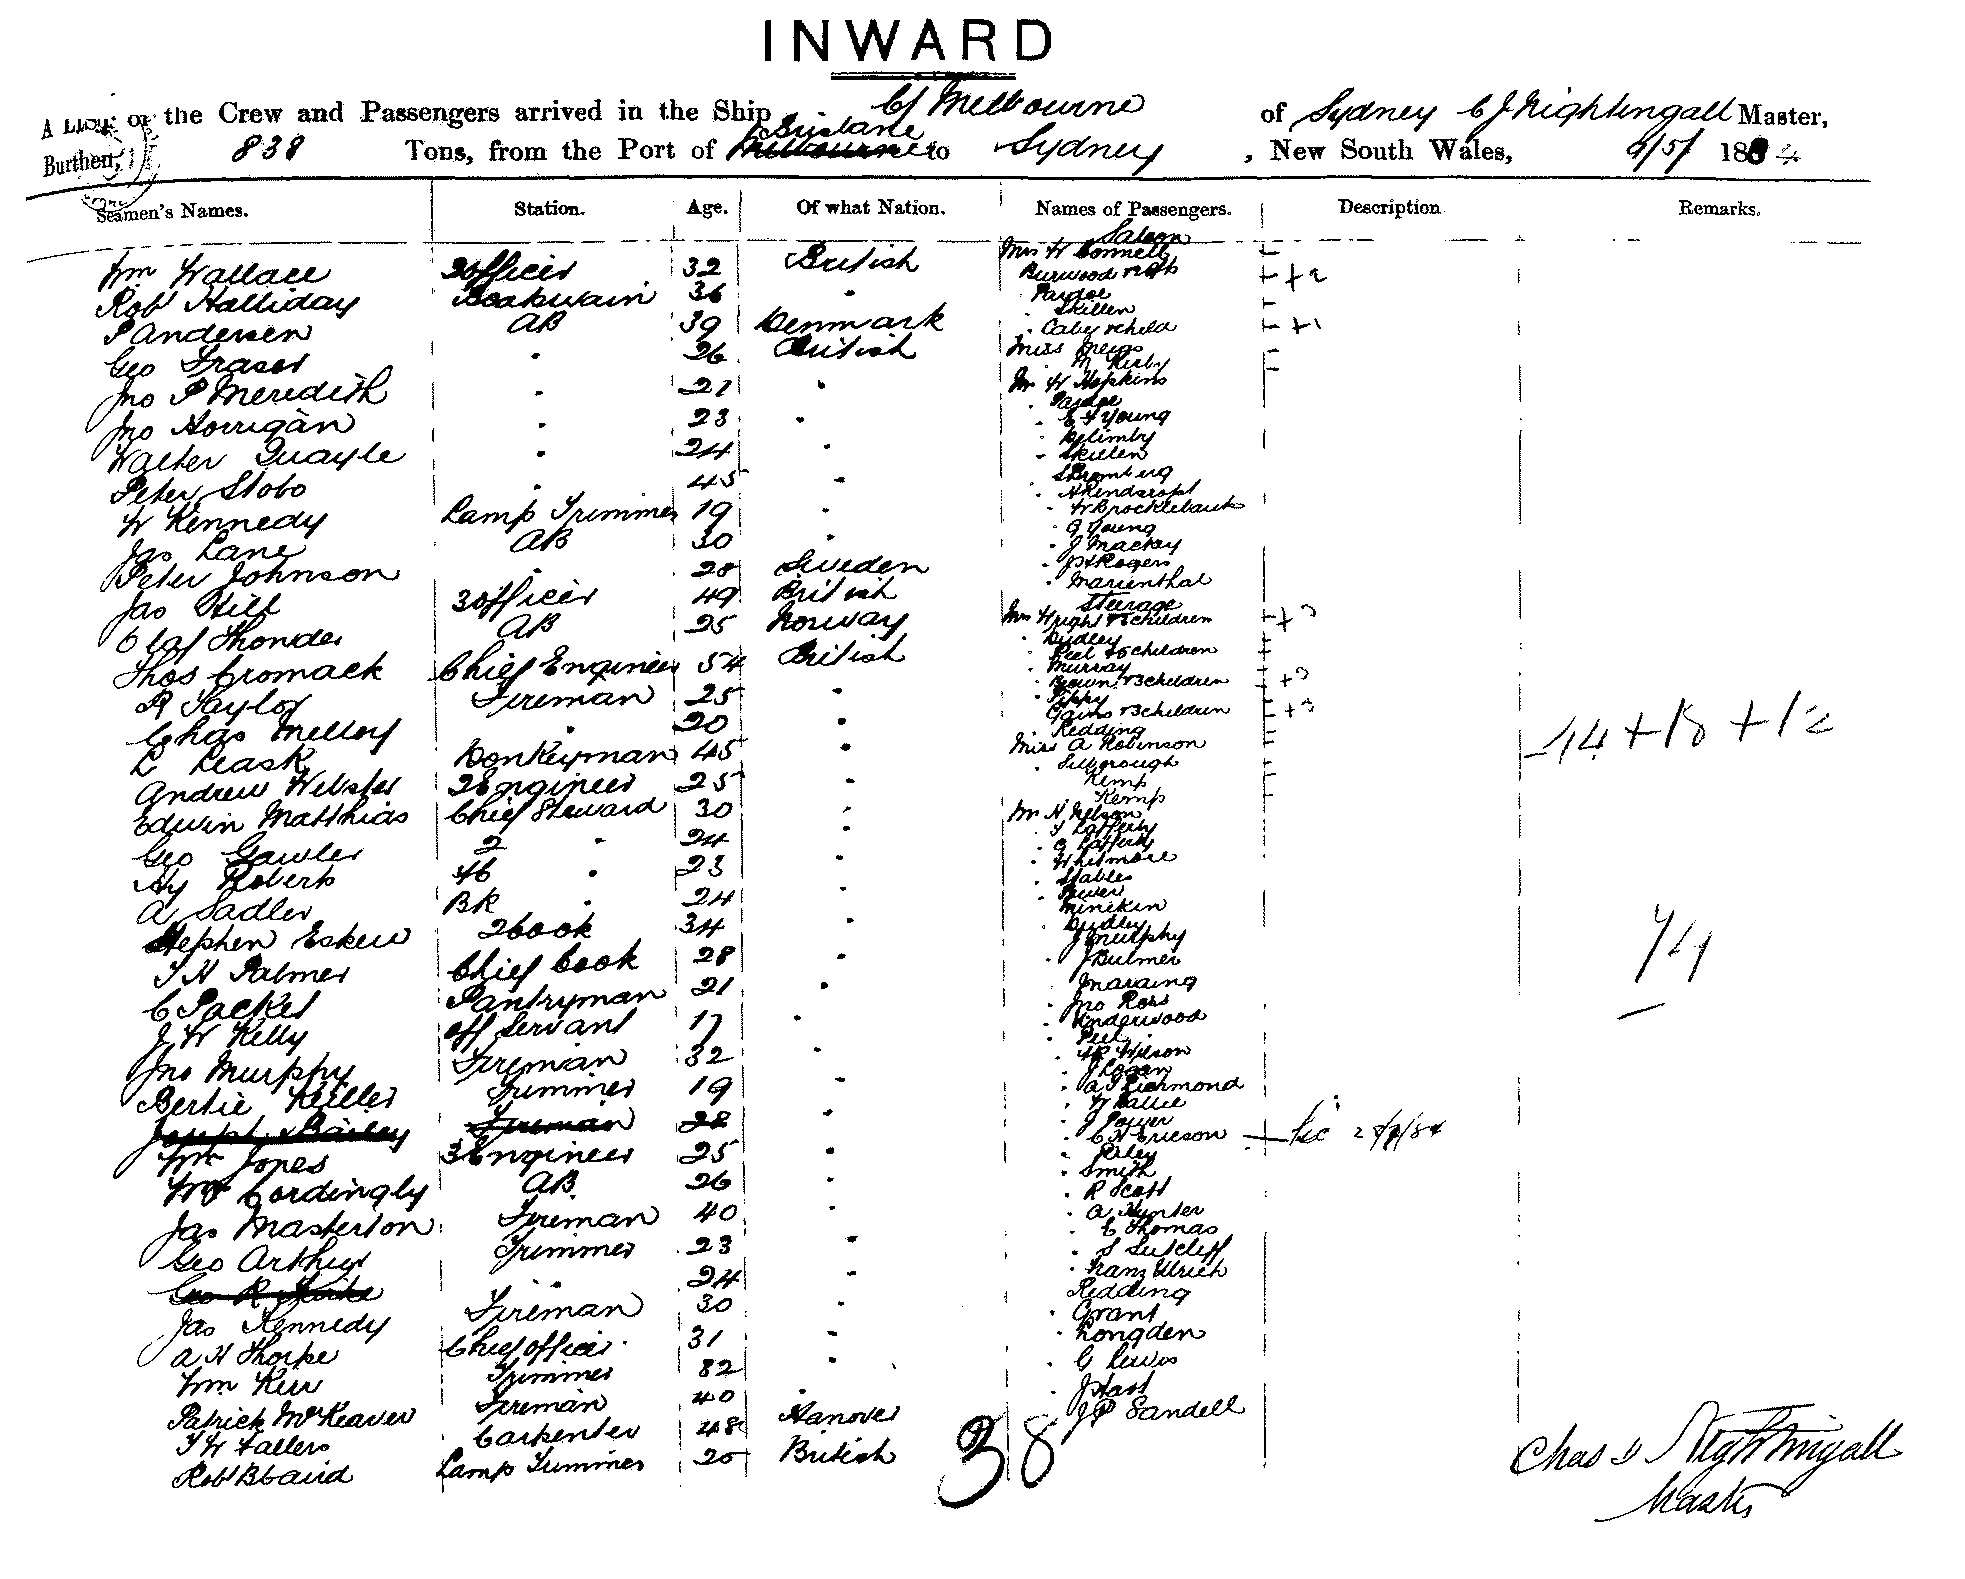 INWARD
A List of the Crew and Passengers arrived in the Ship C/ Melbourne of Sydney C J Nightingall Master,
Burthen, 838 Tons, from the Port of Brisbane to Sydney, New South Wales, 6/5/ 1884
Seamen's Names. Station. Age. Of what Nation. Names of Passengers. Description Remarks.
Saloon
Wm Wallace 2 officer 32 British Mrs W Connell
Rob Halliday Boatswain 36 " Burwood +2
Pardoe
P Andersen AB 39 Denmark Skillen
Caley & child +1
Geo Fraser " 26 British Miss
M Kirby
Jno P Meredith " 21 " Mr W Hopkins
Pardoe
Jno Horrigan " 23 " E F Young
Walter Quayle " 24 " Skillen
Peter Stobo " 45 "
W Kennedy Lamp Trimmer 19 " W Brocklebank
Jas Lane AB 30 " G Young
J Mackay
Peter Johnson " 28 Sweden Rogers
Marienthal
Jas Hill 3 officer 49 British Steerage
Olaf Thonder AB 25 Norway Mrs Wright & children
Dudley
Thos Cromack Chief Engineer 54 British Peel & children
Murray
R Taylor Fireman 25 " Brown & 3 children +3
Tippy
Chas Melloy " 20 " Gains & 3 children +3
Redding
L Leask Donkeyman 45 " Miss A Robinson 44 + 18 + 12
Andrew Webster 2 Engineer 25 " Kemp
Kemp
Edwin Matthias Chief Steward 30 " Mr H Nelson
T Lafferty
Geo Gawler 2 " 24 " G Lafferty
Whitmore
Hy Roberts " 23 " Stables
A Sadler BK " 24 " Minekin
Stephen Eskew 2 Cook 34 " Dudley
J Murphy 74
T H Palmer Chief Cook 28 " J Bulmer
C Packet Pantryman 21 " Jno Ross
J W Kelly off Servant 17 " Underwood
Peel
Jno Murphy Fireman 32 " Wilson
J Logan
Bertie Keiller Trimmer 19 " A J Richmond
W Baillie
Joseph Bailey Fireman 28 " J Power
C H Ericson
Wm Jones 3 Engineer 25 " Riley
Smith
Wm Cordingly AB 26 " R Scott
Jas Masterton Fireman 40 " A Hunter
C Thomas
Geo Arthur Trimmer 23 " S Sutcliff
" 24 " Franz Ulrich
Redding
Jas Kennedy Fireman 30 " Grant
A H Thorpe Chief officer 31 " Longden
Wm Kerr Trimmer 32 " G Lewis
Patrick McKeaver Fireman 40 " J Hart
T W Fallers Carpenter 48 Hanover J P Sandell
Robt B Baird Lamp Trimmer 20 British
38
Chas J Nightingall
Master